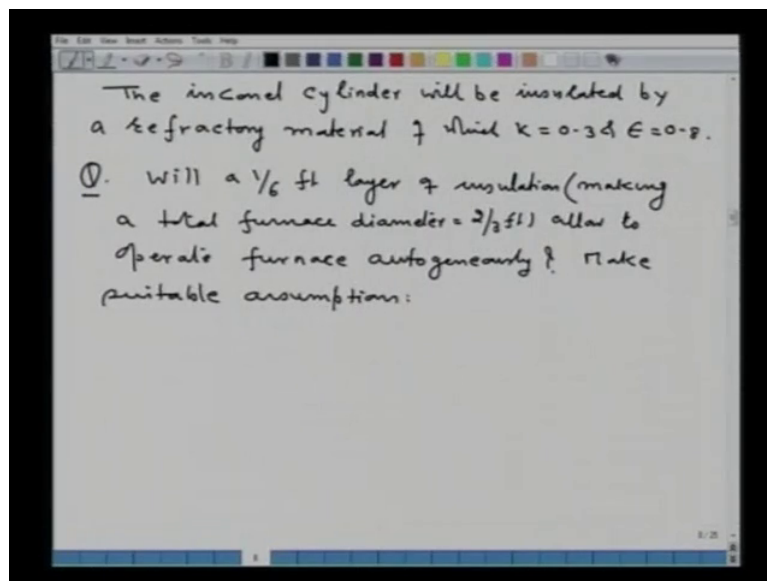 File Edit View Insert Actions Tools Help
The inconel cylinder will be insulated by
a refractory material of which K = 0.3 & ϵ = 0.8.
Q. Will a 1/6 ft layer of insulation (making
a total furnace diameter = 2/3 ft) allow to
operate furnace autogeneously? Make
suitable assumption: